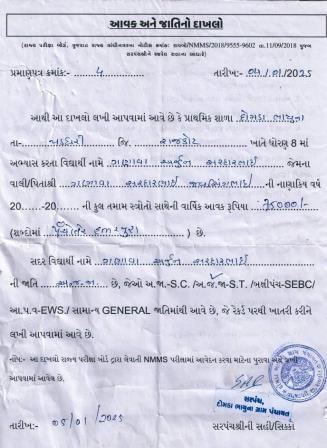 આવક અને જાતિનો દાખલો
(રાજ્ય પરીક્ષા બોર્ડ, ગુજરાત રાજ્ય ગાંધીનગરના નોટીસ ક્રમાંક: રાપબો/NMMS/2018/9555-9602 તા.11/09/2018 મુજબ
સરપંચશ્રીએ આપવાનો દાખલો)
પ્રમાણપત્ર ક્રમાંક:- 4 તારીખ:- 01/01/2025
આથી આ દાખલો લખી આપવામાં આવે છે કે પ્રાથમિક શાળા
તા- પડધરી જિ. રાજકોટ ખાતે ધોરણ 8 માં
અભ્યાસ કરતા વિદ્યાર્થી નામે અર્જુન સરદારભાઈ જેમના
વાલી/પિતાશ્રી સરદારભાઈ ની નાણાકિય વર્ષ
20......-20...... ની કુલ તમામ સ્ત્રોતો સાથેની વાર્ષિક આવક રૂપિયા 75000/-
(શબ્દોમાં પંચોતેર હજાર પુરા) છે.
સદર વિદ્યાર્થી નામે અર્જુન સરદારભાઈ
ની જાતિ છે, જેઓ અ.જા.-S.C. /અ.જ.જા-S.T. /બક્ષીપંચ-SEBC/
આ.પ.વ-EWS./ સામાન્ય GENERAL જાતિમાંથી આવે છે, જે રેકર્ડ પરથી ખાતરી કરીને
લખી આપવામાં આવે છે.
નોંધ:- આ દાખલો રાજ્ય પરીક્ષા બોર્ડ દ્વારા લેવાની NMMS પરીક્ષામાં આવેદન કરવા માટેના પુરાવા અર્થે લખી
આપવામાં આવેલ છે.
સરપંચ,
ગ્રામ પંચાયત
તારીખ:- 01/2025 સરપંચશ્રીની સહી/સિક્કા